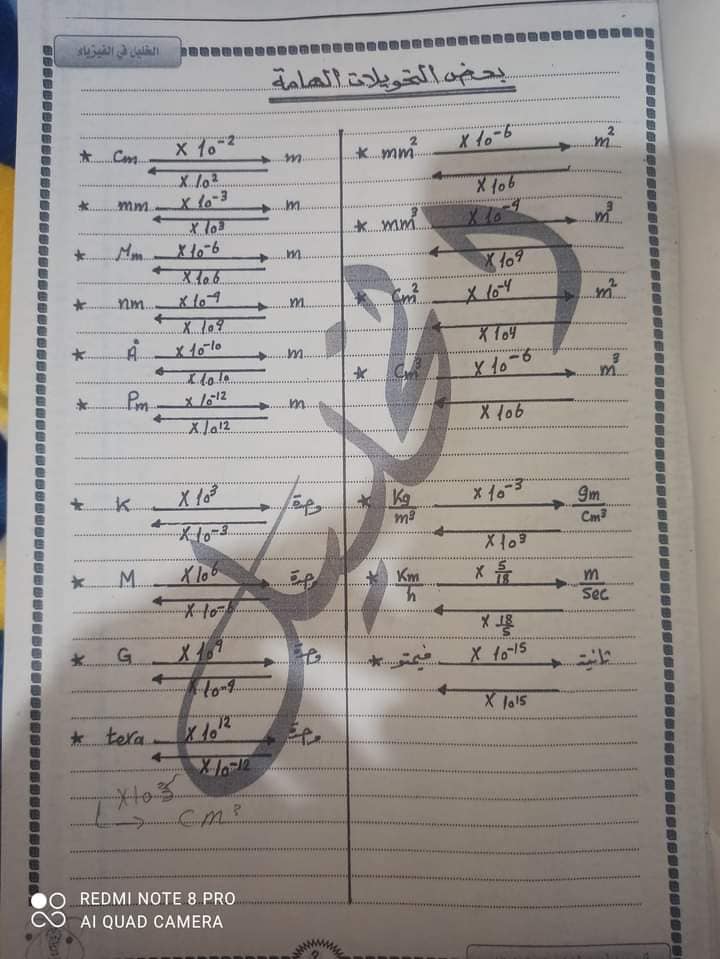 الخليل في الفيزياء
بعض التحويلات الهامة
* Cm × 10⁻² m
× 10²
* mm × 10⁻³ m
× 10³
* μm × 10⁻⁶ m
× 10⁶
* nm × 10⁻⁹ m
× 10⁹
* Å × 10⁻¹⁰ m
× 10¹⁰
* Pm × 10⁻¹² m
× 10¹²
* K × 10³ وحدة
× 10⁻³
* M × 10⁶ وحدة
× 10⁻⁶
* G × 10⁹ وحدة
× 10⁻⁹
* tera × 10¹² وحدة
× 10⁻¹²
Cm³
* mm² × 10⁻⁶ m²
× 10⁶
* mm³ × 10⁻⁹ m³
× 10⁹
* Cm² × 10⁻⁴ m²
× 10⁴
* Cm³ × 10⁻⁶ m³
× 10⁶
* Kg/m³ × 10⁻³ gm/Cm³
× 10³
* Km/h × 5/18 m/sec
× 18/5
* فيمتو × 10⁻¹⁵ ثانية
× 10¹⁵
خليل
REDMI NOTE 8 PRO
AI QUAD CAMERA